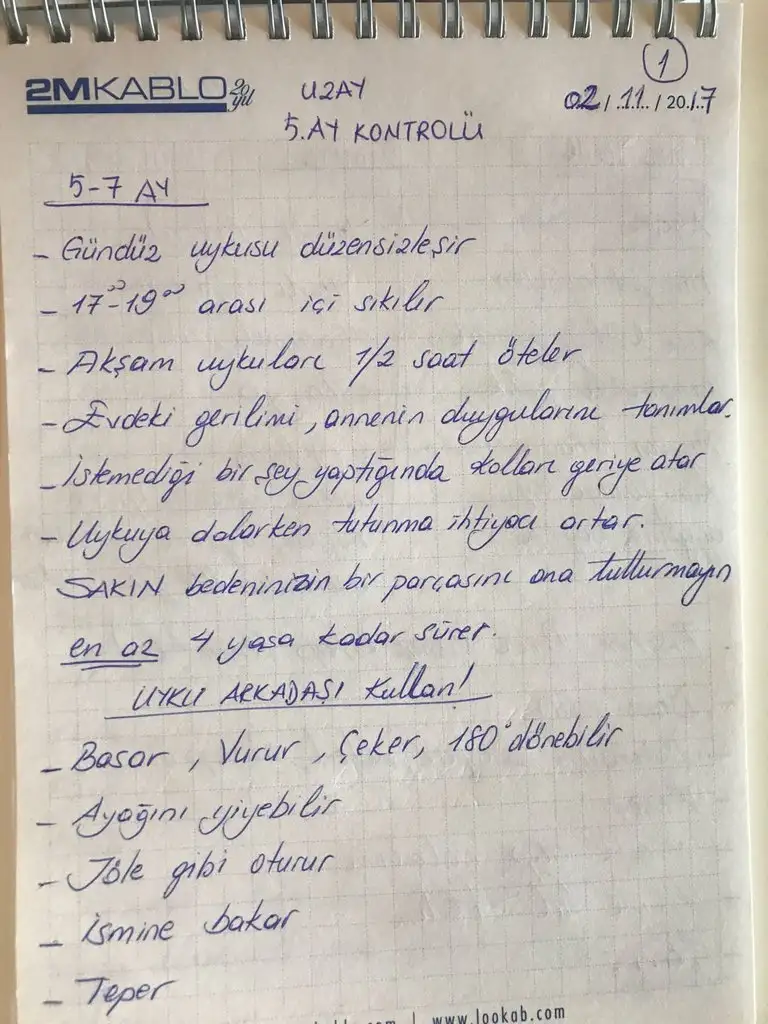 1
2MKABLO 20 yıl
UZAY
02/11/2017
5.AY KONTROLÜ
5-7 AY
- Gündüz uykusu düzensizleşir
- 17⁰⁰-19⁰⁰ arası içi sıkılır
- Akşam uykuları 1/2 saat öteler
- Evdeki gerilimi, annenin duygularını tanımlar.
- İstemediği bir şey yaptığında kolları geriye atar
- Uykuya dalarken tutunma ihtiyacı artar.
SAKIN bedeninizin bir parçasını ona tutturmayın
en az 4 yaşa kadar sürer.
UYKU ARKADAŞI Kullan!
- Basar, Vurur, Çeker, 180° dönebilir
- Ayağını yiyebilir
- Jöle gibi oturur
- İsmine bakar
- Teper
.com | www.lookab.com